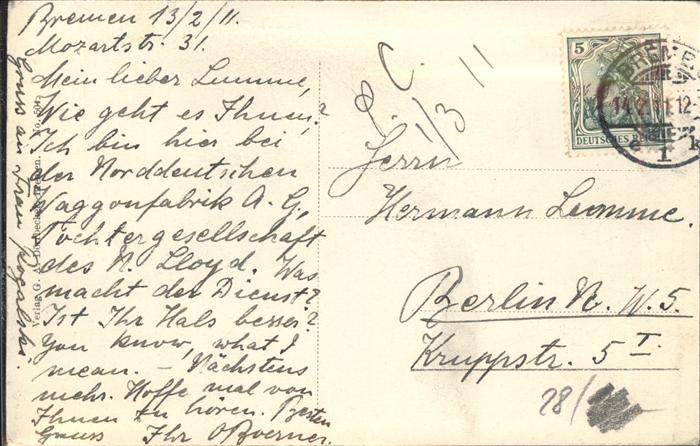 Bremen 13/2/11.
Mozartstr. 31.
Mein lieber Lemme,
Wie geht es Ihnen?
Ich bin hier bei
der Norddeutschen
Waggonfabrik A. G,
Tochtergesellschaft
des N. Lloyd. Was
macht der Dienst?
Ist Ihr Hals besser?
You know, what I
mean. — Nächstens
mehr. Hoffe mal von
Ihnen zu hören. Besten
Gruss Ihr
Gruss an Frau Rogalski.
Verlag G. A.
L. C.
1/3 11
Herrn
Hermann Lemme.
Berlin N. W. 5.
Kruppstr. 5 I.
28/
5
DEUTSCHES REICH
BREMEN
14.2.11.12